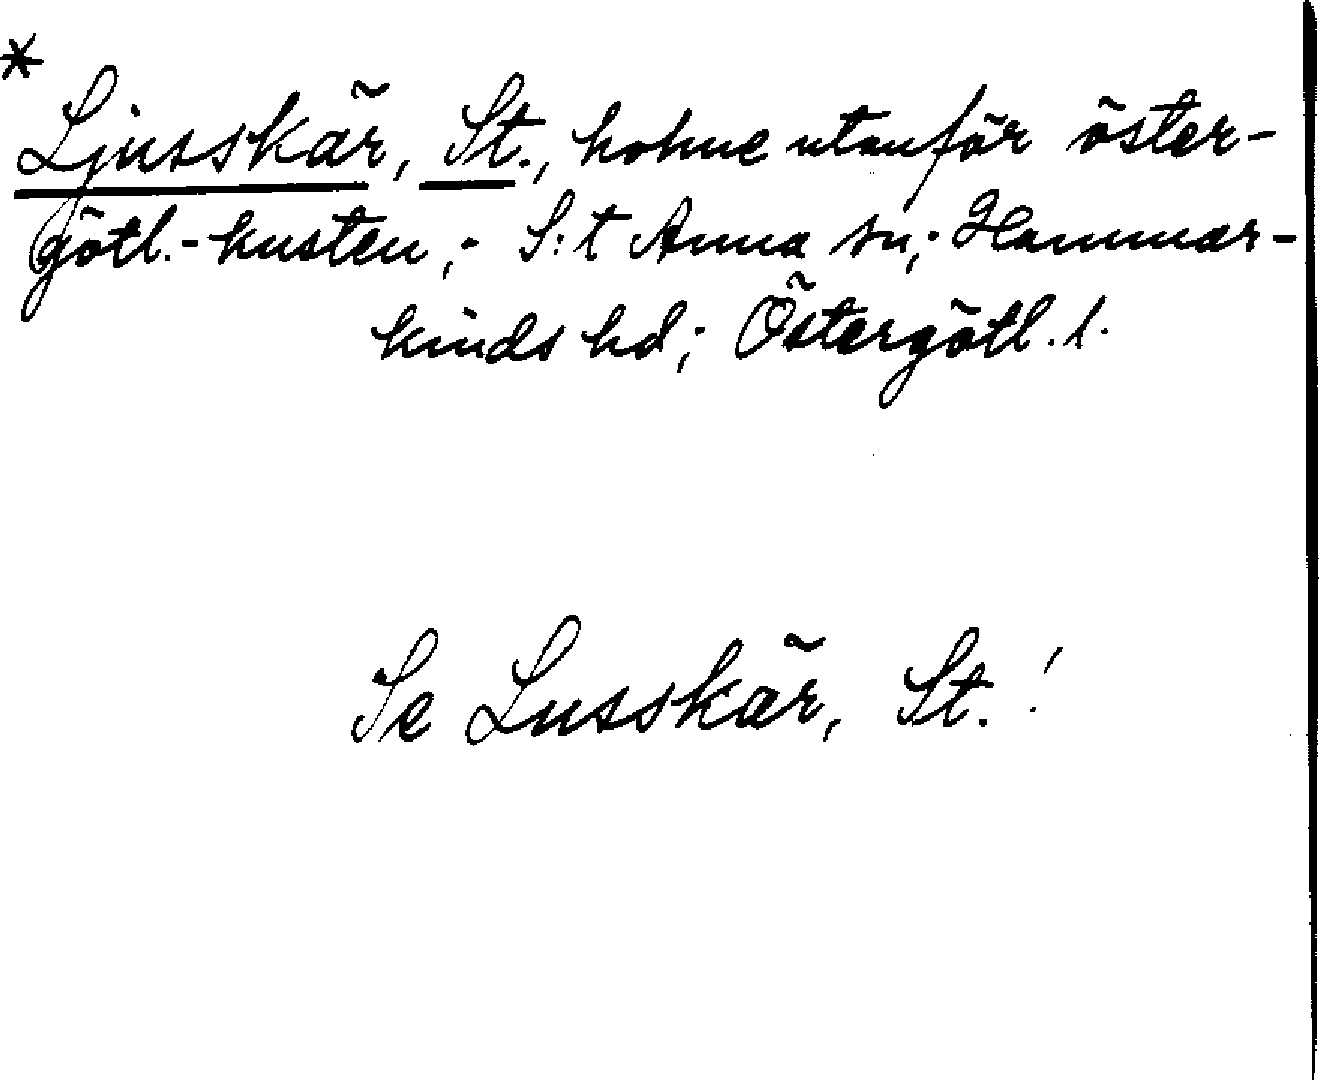 *
Ljusskär, St., holme utanför öster-
götl.-kusten; S:t Anna sn; Hammar-
kinds hd; Östergötl. l.
Se Lusskär, St.!